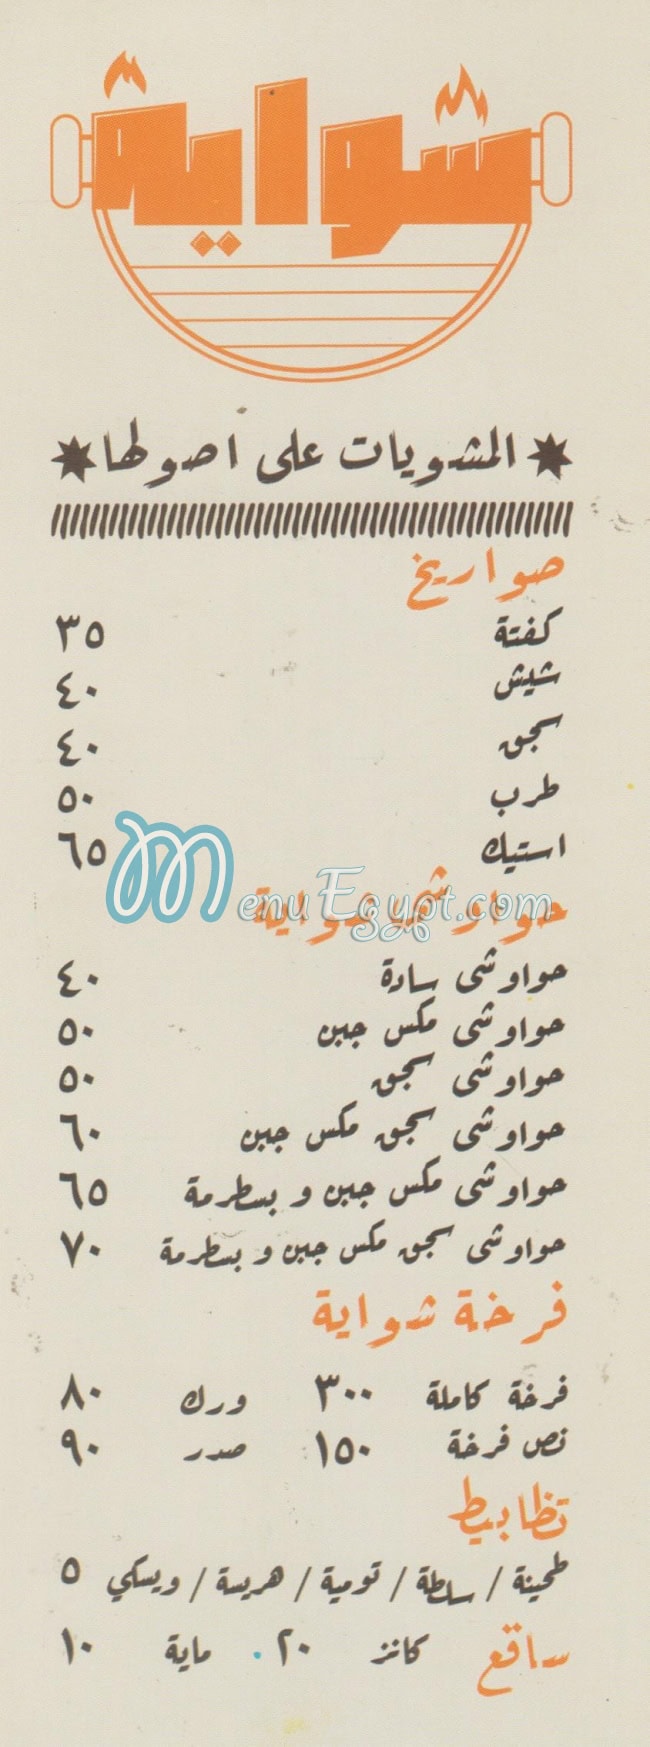 شواية
المشويات على اصولها
صواريخ
كفتة ٣٥
شيش ٤٠
سجق ٤٠
طرب ٥٠
استيك ٦٥
MenuEgypt.com
حواوشي شواية
حواوشى سادة ٤٠
حواوشى مكس جبن ٥٠
حواوشى سجق ٥٠
حواوشى سجق مكس جبن ٦٠
حواوشى مكس جبن و بسطرمة ٦٥
حواوشى سجق مكس جبن و بسطرمة ٧٠
فرخة شواية
فرخة كاملة ٣٠٠ ورك ٨٠
نص فرخة ١٥٠ صدر ٩٠
تظابيط
طحينة / سلطة / تومية / هريسة / ويسكي ٥
ساقع كانز ٢٠ ماية ١٠